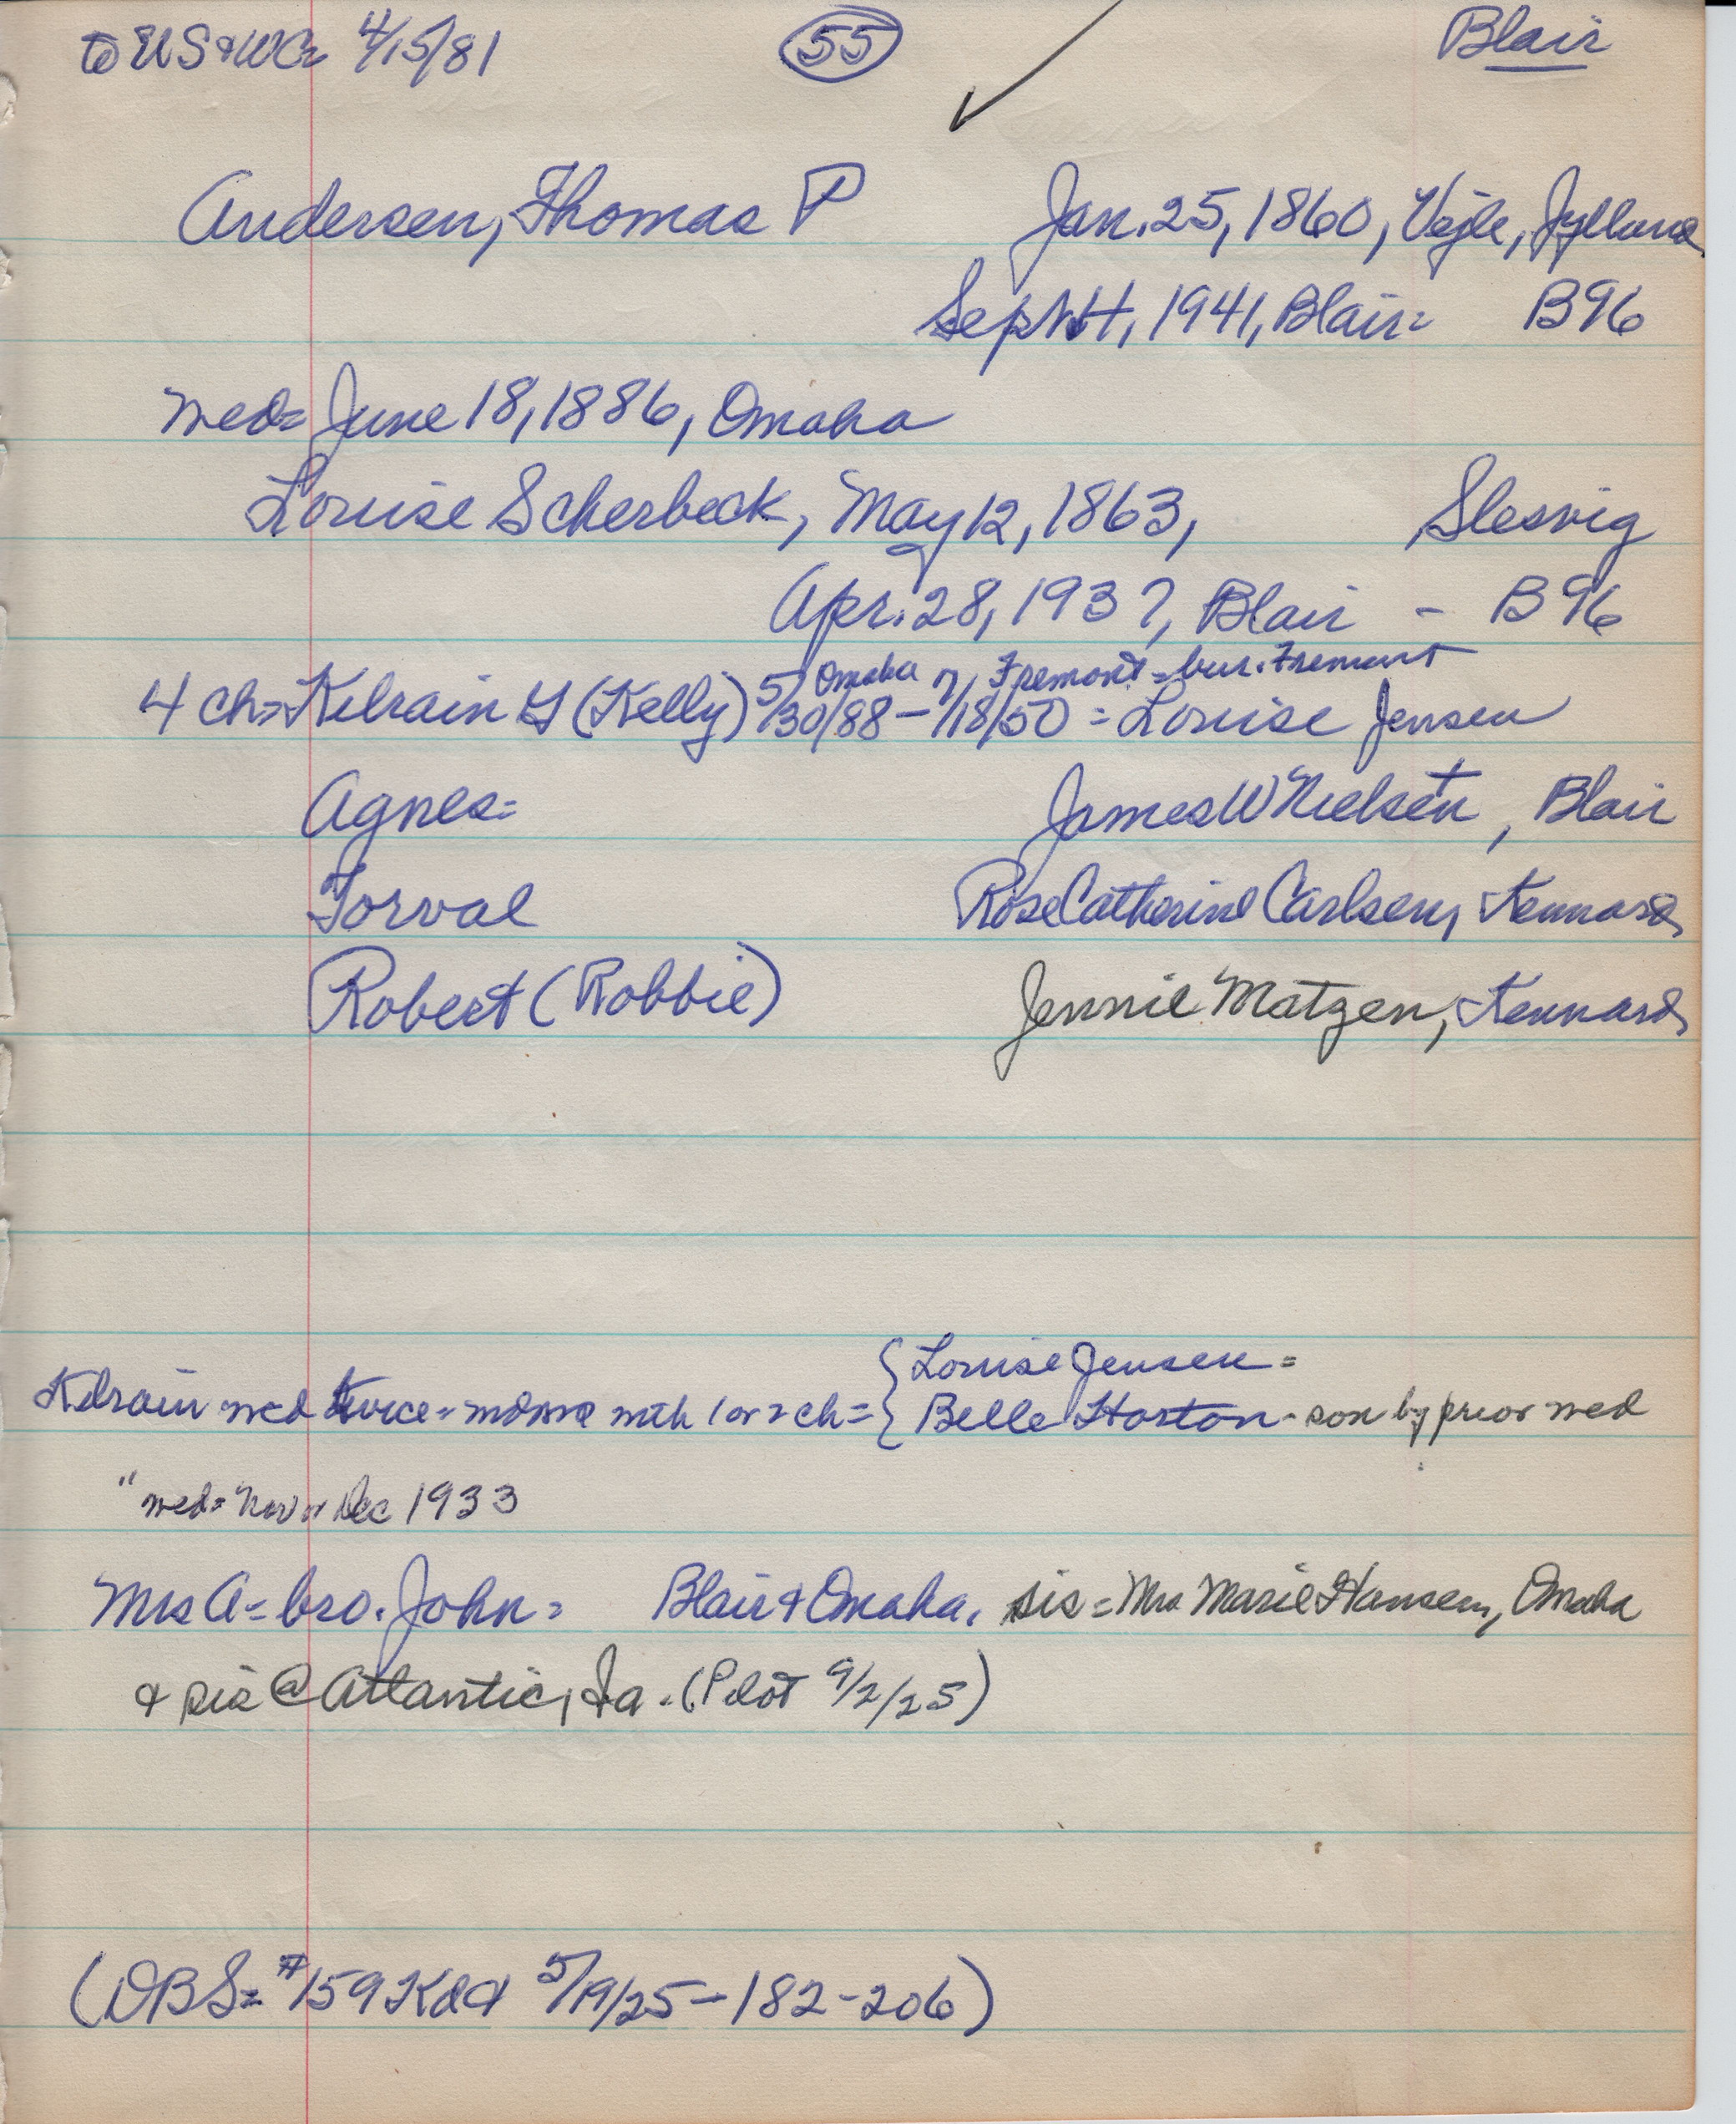 to US & WCo 4/15/81 55 Blair
Andersen, Thomas P Jan. 25, 1860, Vejle, Jylland
Sept 4, 1941, Blair= B96
med= June 18, 1886, Omaha
Louise Scherbeck, May 12, 1863, Slesvig
Apr. 28, 193?, Blair - B96
Omaha Fremont - bur. Fremont
4 ch= Kilrain Y (Kelly) 5/30/88 - 7/18/50 = Louise Jensen
Agnes= James W Nielsen, Blair
Torval Rose Catherine Carlsen, Kennard
Robert (Robbie) Jennie Matzen, Kennard
Louise Jensen =
Kilrain med twice - 1 or 2 ch = { Belle Horton - son by prior med
" med= Nov or Dec 1933
Mrs A= bro. John= Blair & Omaha, sis = Mrs Marie Hansen, Omaha
& sis @ Atlantic, Ia. (Pilot 9/2/25)
(DBS= #159 5/19/25 - 182-206)